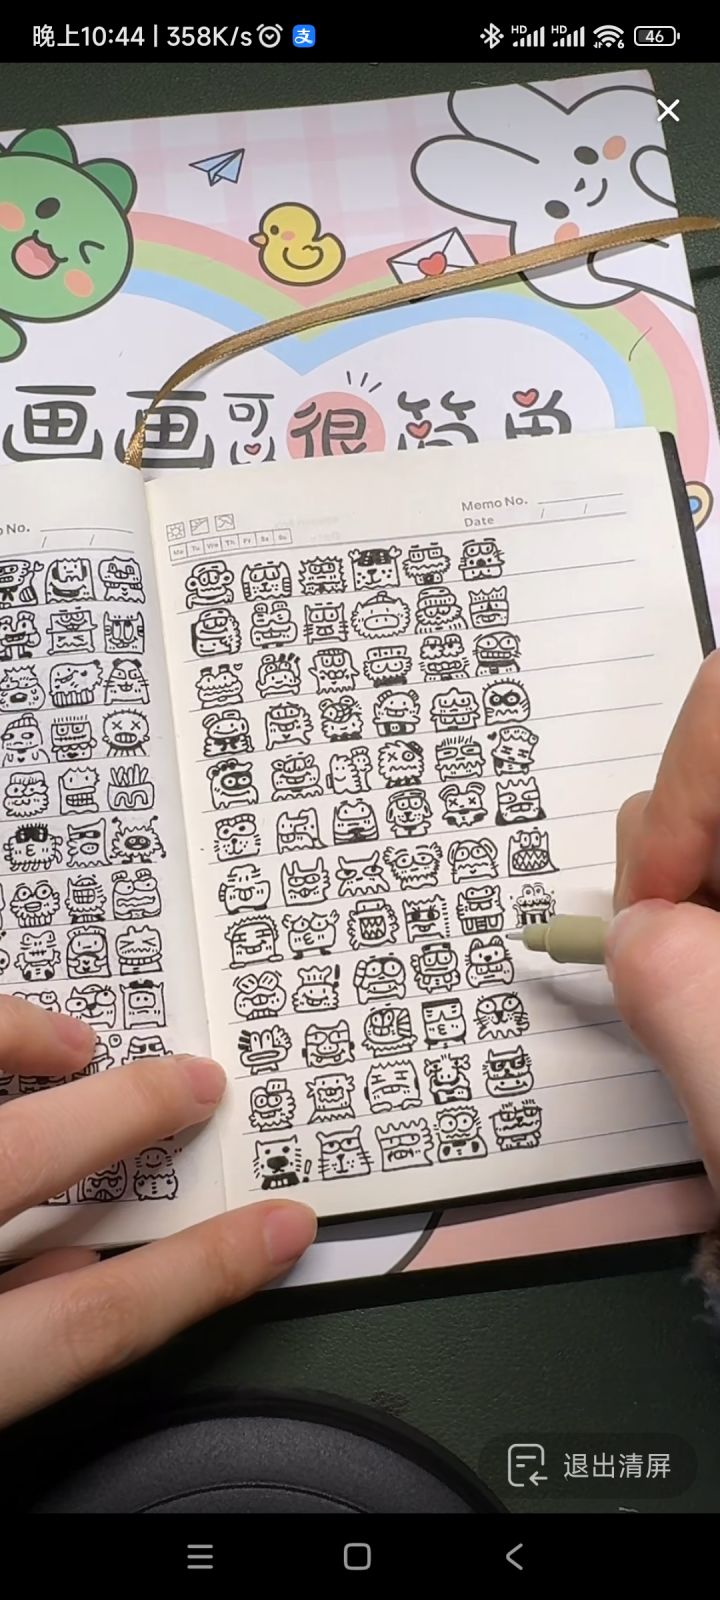 晚上10:44 | 358K/s 支 HD HD 6 46
画画可以很简单
No.
/ /
Memo No.
Date / /
Mo Tu We Th Fr Sa Su
退出清屏